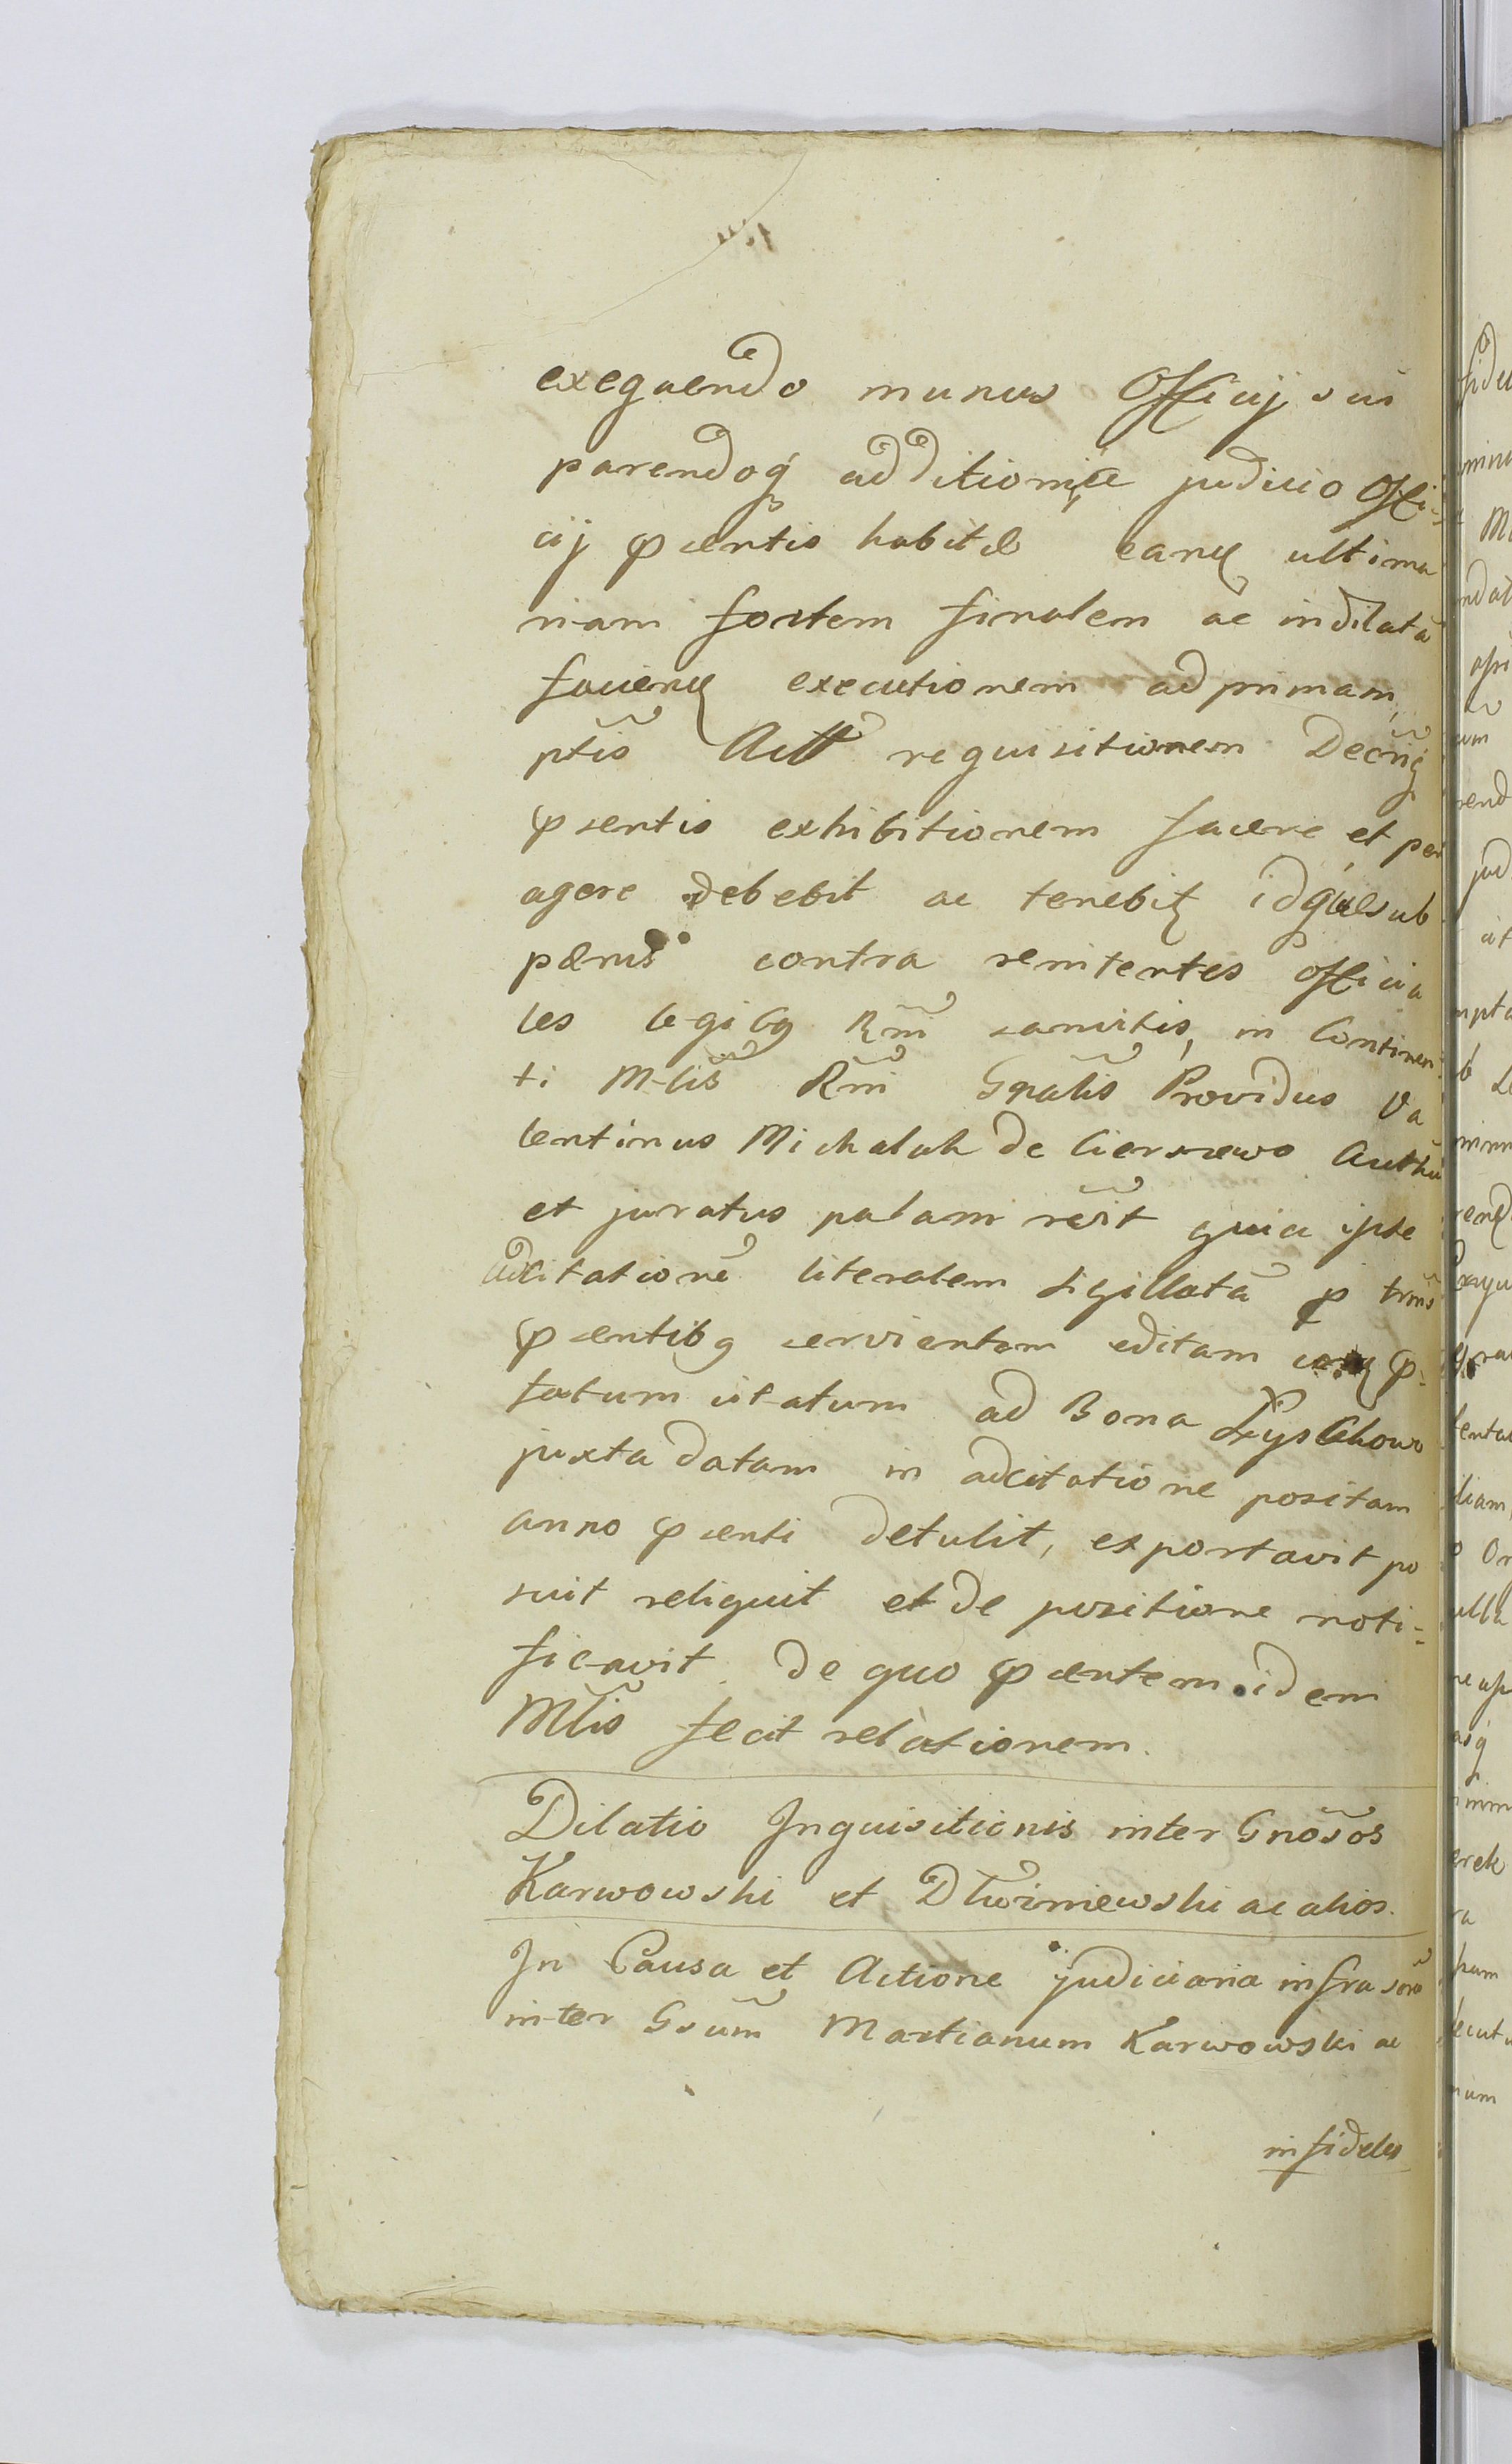 exequendo munus Officij sui
parendoq additioni in judicio Offi-
cij psentis habitæ eamq ultima
riam fortem finalem ac indilatã
faciens executionem ad primam
ptis Act requisitionem Decrij
psentis exhibitionem facere et per
agere debebit ac tenebit idque sub
pænis contra renitentes Officia
les legibq Rni sancitis, in Continen
ti Mlis Rni Gnalis Providus Va
lentinus Michalak de Cierzewo Authen
et juratus palam recit quia ipse
adcitationẽ literalem sigillatã p trms
psentibq servientem editam p-
fatum citatum ad Bona Łyskowo
juxta datam in adcitatione positam
anno psenti detulit, exportavit po
suit reliquit et de positione noti=
ficavit. De quo psentem idem
Mlis fecit relationem.
Dilatio Inquisitionis inter Gnosos
Karwowski et Dłwiniewski ac alios.
In Causa et Actione judiciaria infrascra
inter Gsum Martianum Karwowski ac
infideles